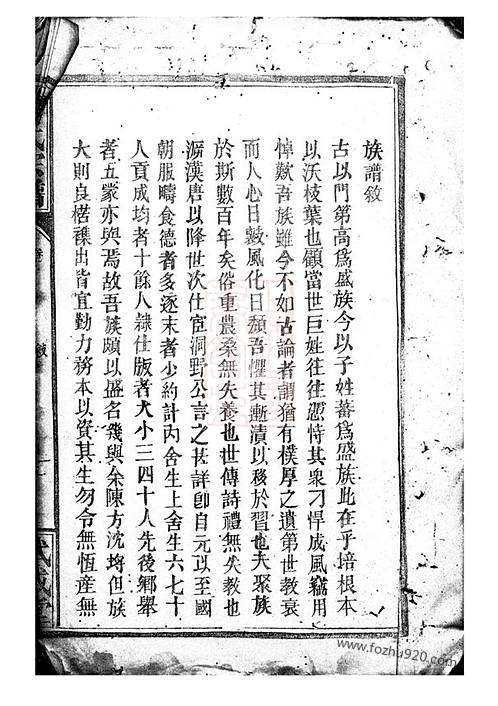 族譜敘
古以門第高為盛族今以子姓蕃為盛族此在乎培根本
以沃枝葉也顧當世巨姓往往憑恃其衆刁悍成風竊用
悼歎吾族雖今不如古論者謂猶有樸厚之遺第世教衰
而人心日斁風化日頹吾懼其漸漬以移於習也夫聚族
於斯數百年矣俗重農桑無失養也世傳詩禮無失教也
溯漢唐以降世次仕宦洞野公言之甚詳卽自元以至國
朝服疇食德者多逐末者少約計內舍生上舍生六七十
人貢成均者十餘人隸仕版者大小三四十人先後鄉舉
者五蒙亦與焉故吾族頗以盛名幾與余陳方沈埒但族
大則良楛襍出皆宜勤力務本以資其生勿令無恆産無
www.fozhu920.com